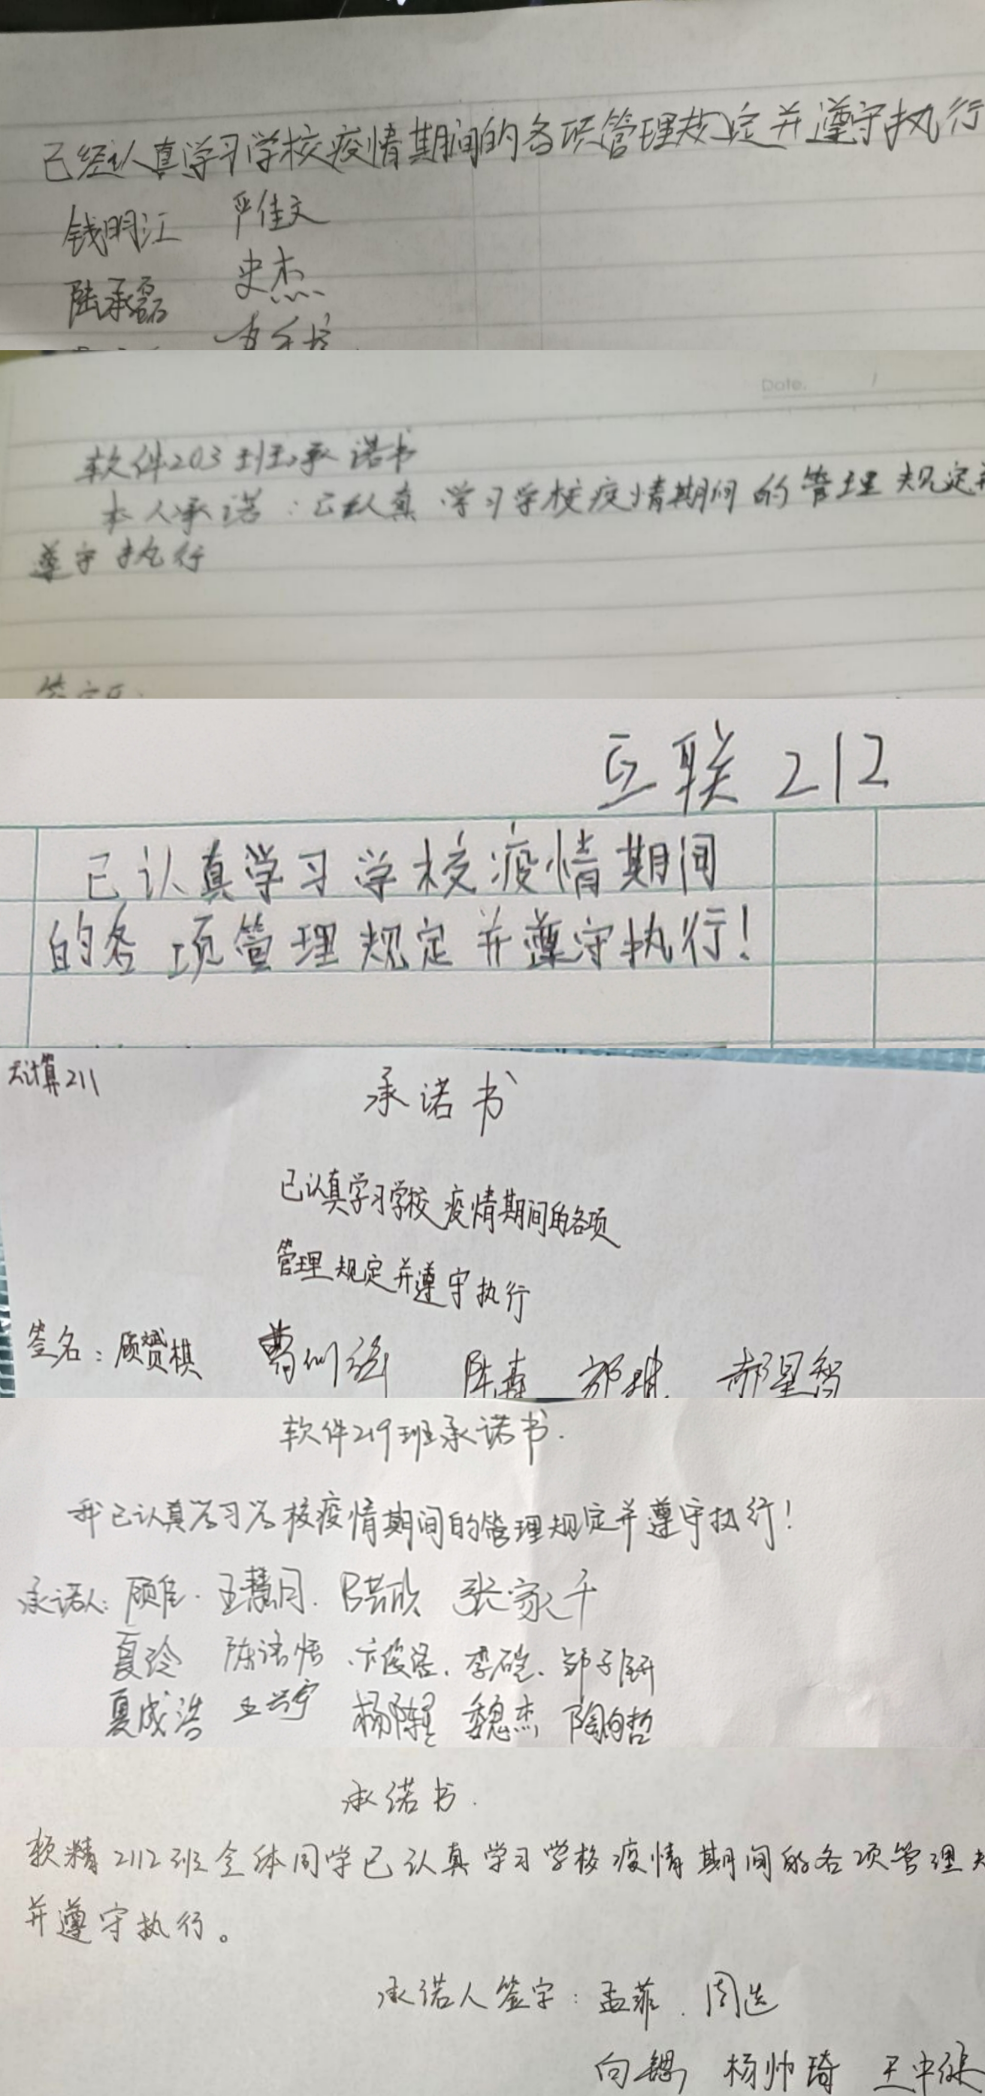 已经认真学习学校疫情期间的各项管理规定并遵守执行
钱明江 严佳文
陆承磊 史杰
Date. /
软件203班承诺书
本人承诺：已认真学习学校疫情期间的管理规定并
遵守执行
互联212
已认真学习学校疫情期间
的各项管理规定并遵守执行！
云计算211
承诺书
已认真学习学校疫情期间的各项
管理规定并遵守执行
签名：顾赟棋 陈森 郝星智
软件219班承诺书.
我已认真学习学校疫情期间的管理规定并遵守执行！
承诺人: 王慧月. 张家千
夏玲 陈诺悟 李硙.
夏成浩 王兴宇 杨陈星 魏杰 陶白哲
承诺书.
软精2112班全体同学已认真学习学校疫情期间的各项管理
并遵守执行。
承诺人签字：孟菲. 周选
杨帅琦